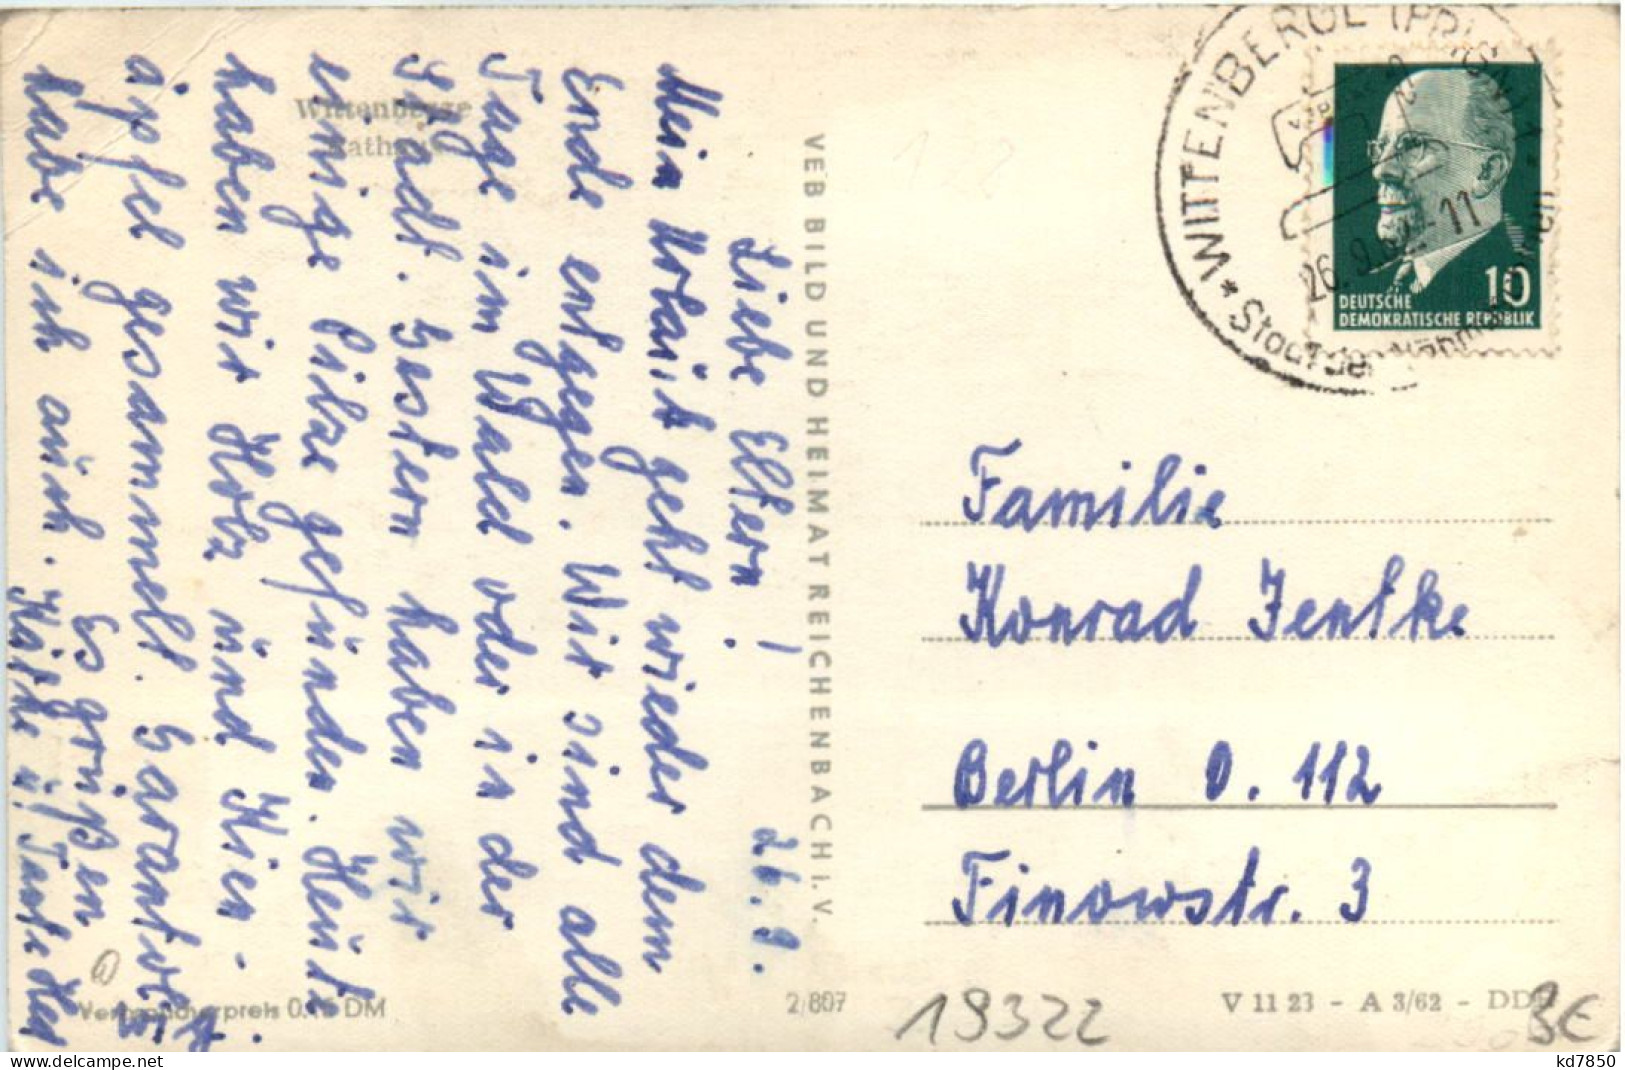 Wittenberge
Rathaus
26. 9.
Liebe Eltern!
Mein Urlaub geht wieder dem
Ende entgegen. Wir sind alle
Tage im Wald oder in der
Stadt. Gestern haben wir
einige Pilze gefunden. Heute
haben wir Holz und Kien-
äpfel gesammelt. Garantol
habe ich auch.
Es grüßen
Käthe u. Tante
VEB BILD UND HEIMAT REICHENBACH i. V.
Verbraucherpreis 0.15 DM
2/807
WITTENBERGE (PRIGNITZ)
* Stadt der Nähmaschinen
26. 9. 62 - 11
10
DEUTSCHE
DEMOKRATISCHE REPUBLIK
Familie
Konrad Jentke
Berlin O. 112
Finowstr. 3
V 11 23 - A 3/62 - DDR
19322
3€
kd7850